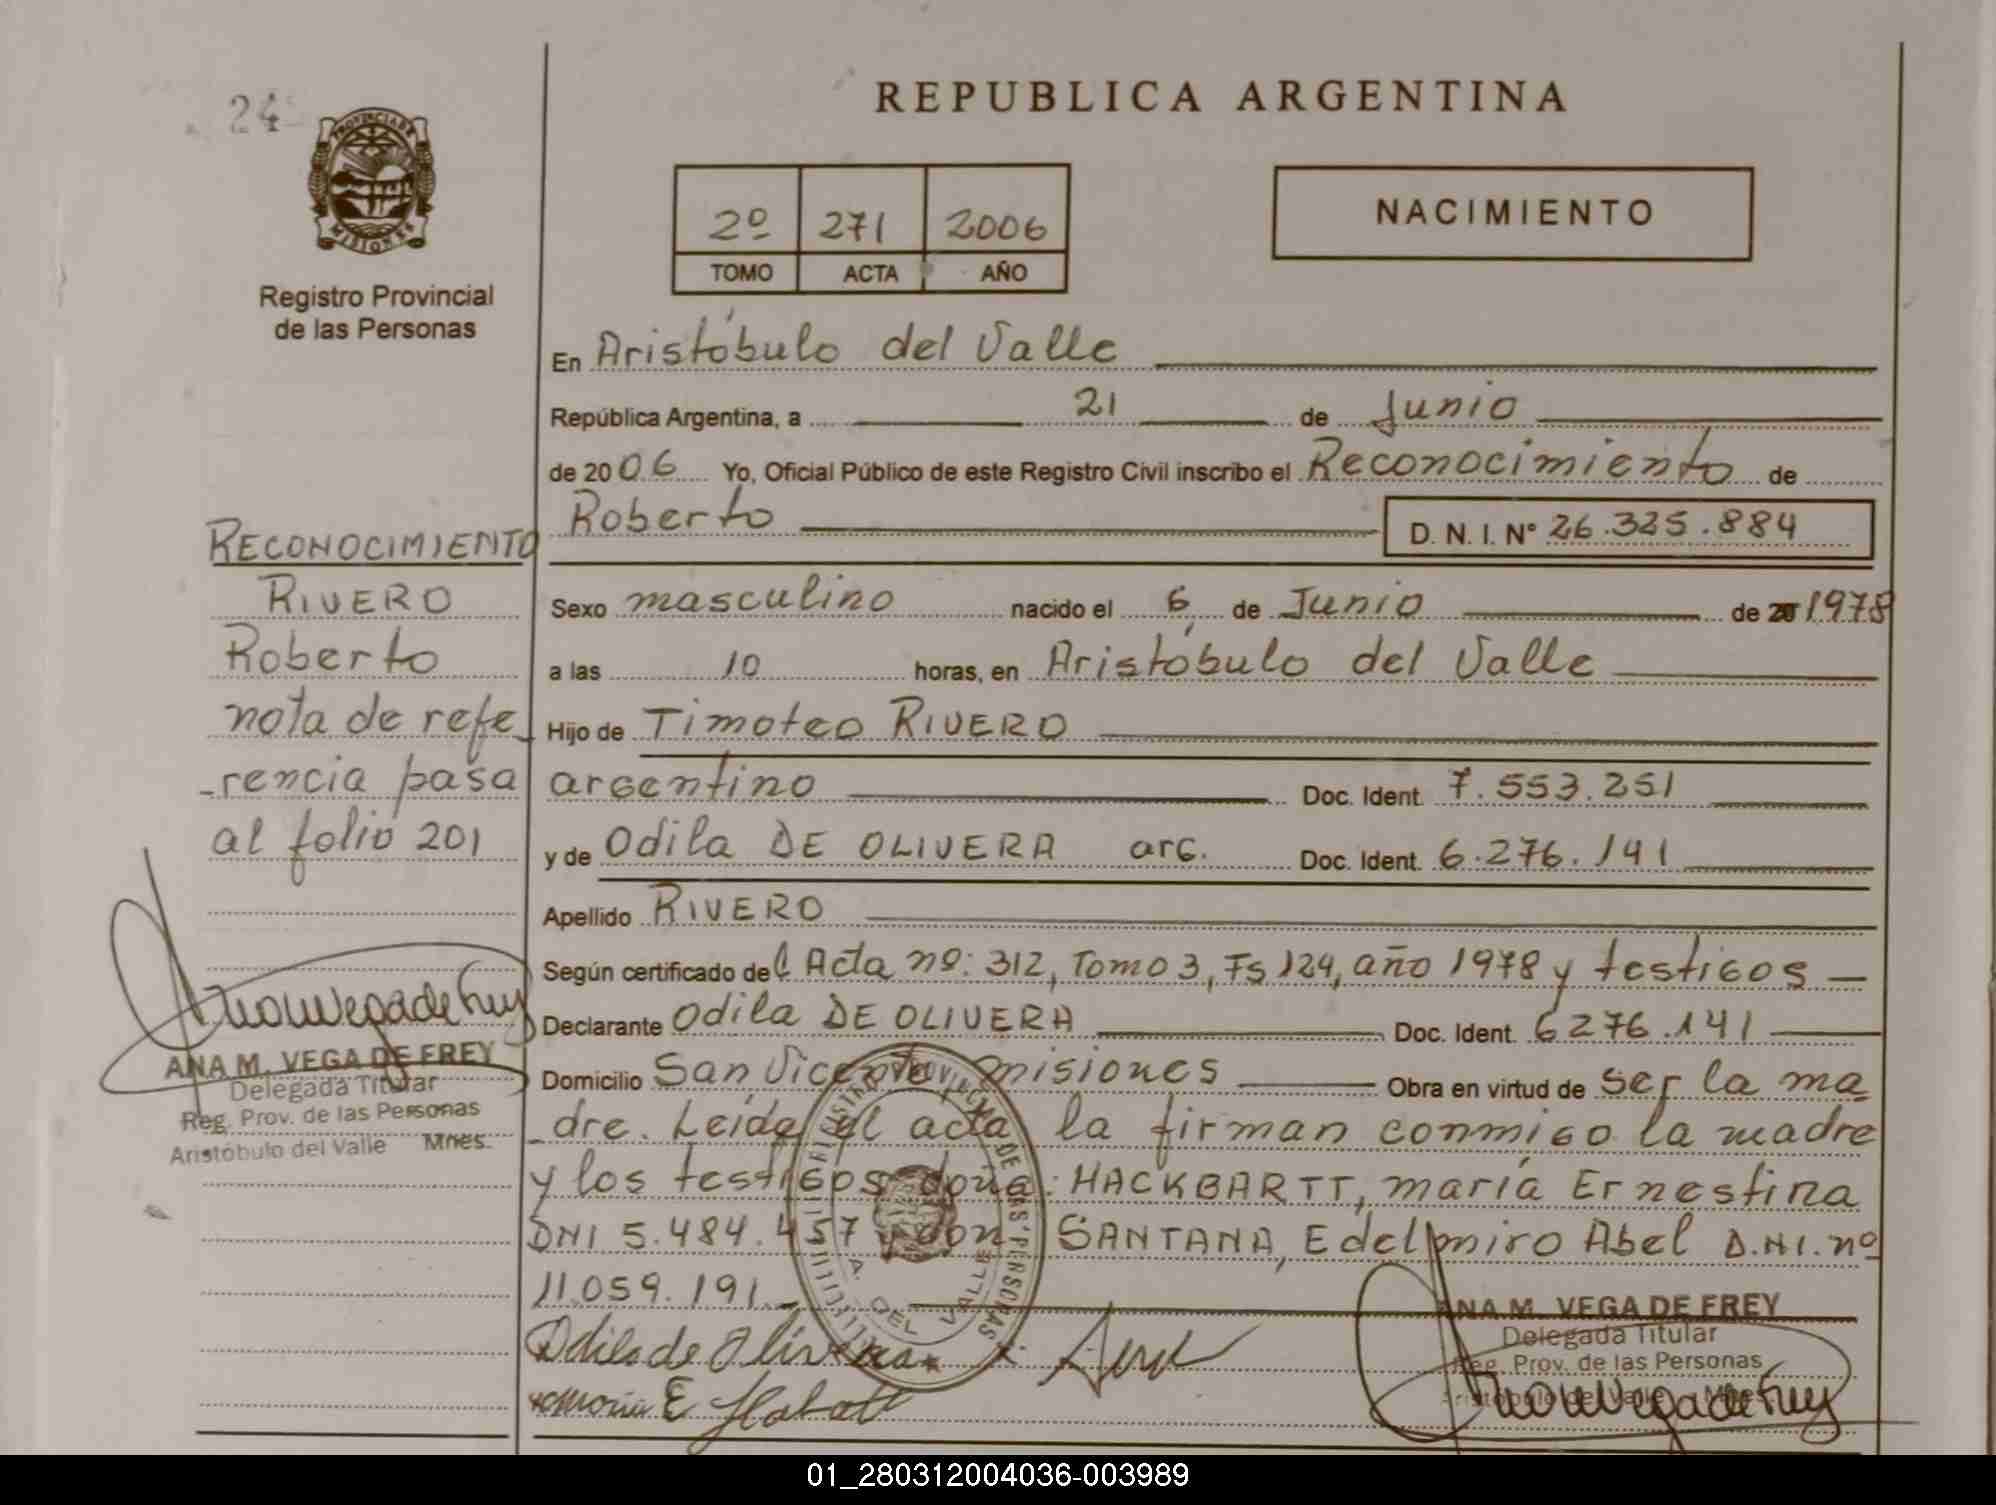 24
PROVINCIA DE
MISIONES
Registro Provincial
de las Personas
REPUBLICA ARGENTINA
2º 271 2006
TOMO ACTA AÑO
NACIMIENTO
En Aristóbulo del Valle
República Argentina, a 21 de Junio
de 2006 Yo, Oficial Público de este Registro Civil inscribo el Reconocimiento de
Roberto D. N. I. Nº 26.325.884
Sexo masculino nacido el 6 de Junio de 20 1978
a las 10 horas, en Aristóbulo del Valle
Hijo de Timoteo RIVERO
argentino Doc. Ident. 7.553.251
y de Odila DE OLIVERA arg. Doc. Ident. 6.276.141
Apellido RIVERO
Según certificado de Acta nº: 312, Tomo 3, Fs 124, año 1978 y testigos
Declarante Odila DE OLIVERA Doc. Ident. 6276.141
Domicilio San Vicente misiones Obra en virtud de ser la ma
dre. Leída el acta la firman conmigo la madre
y los testigos doña: HACKBARTT, maría Ernestina
DNI 5.484.457 y don SANTANA, Edelmiro Abel D.N.I. nº
11.059.191.
RECONOCIMIENTO
RIVERO
Roberto
nota de refe
-rencia pasa
al folio 201
Ana M Vega de Frey
ANA M. VEGA DE FREY
Delegada Titular
Reg. Prov. de las Personas
Aristóbulo del Valle Mnes.
A. DEL VALLE
Odila de Olivera
Maria E
ANA M. VEGA DE FREY
Delegada Titular
Reg. Prov. de las Personas
Aristóbulo del Valle Mnes
Ana M Vega de Frey
01_280312004036-003989